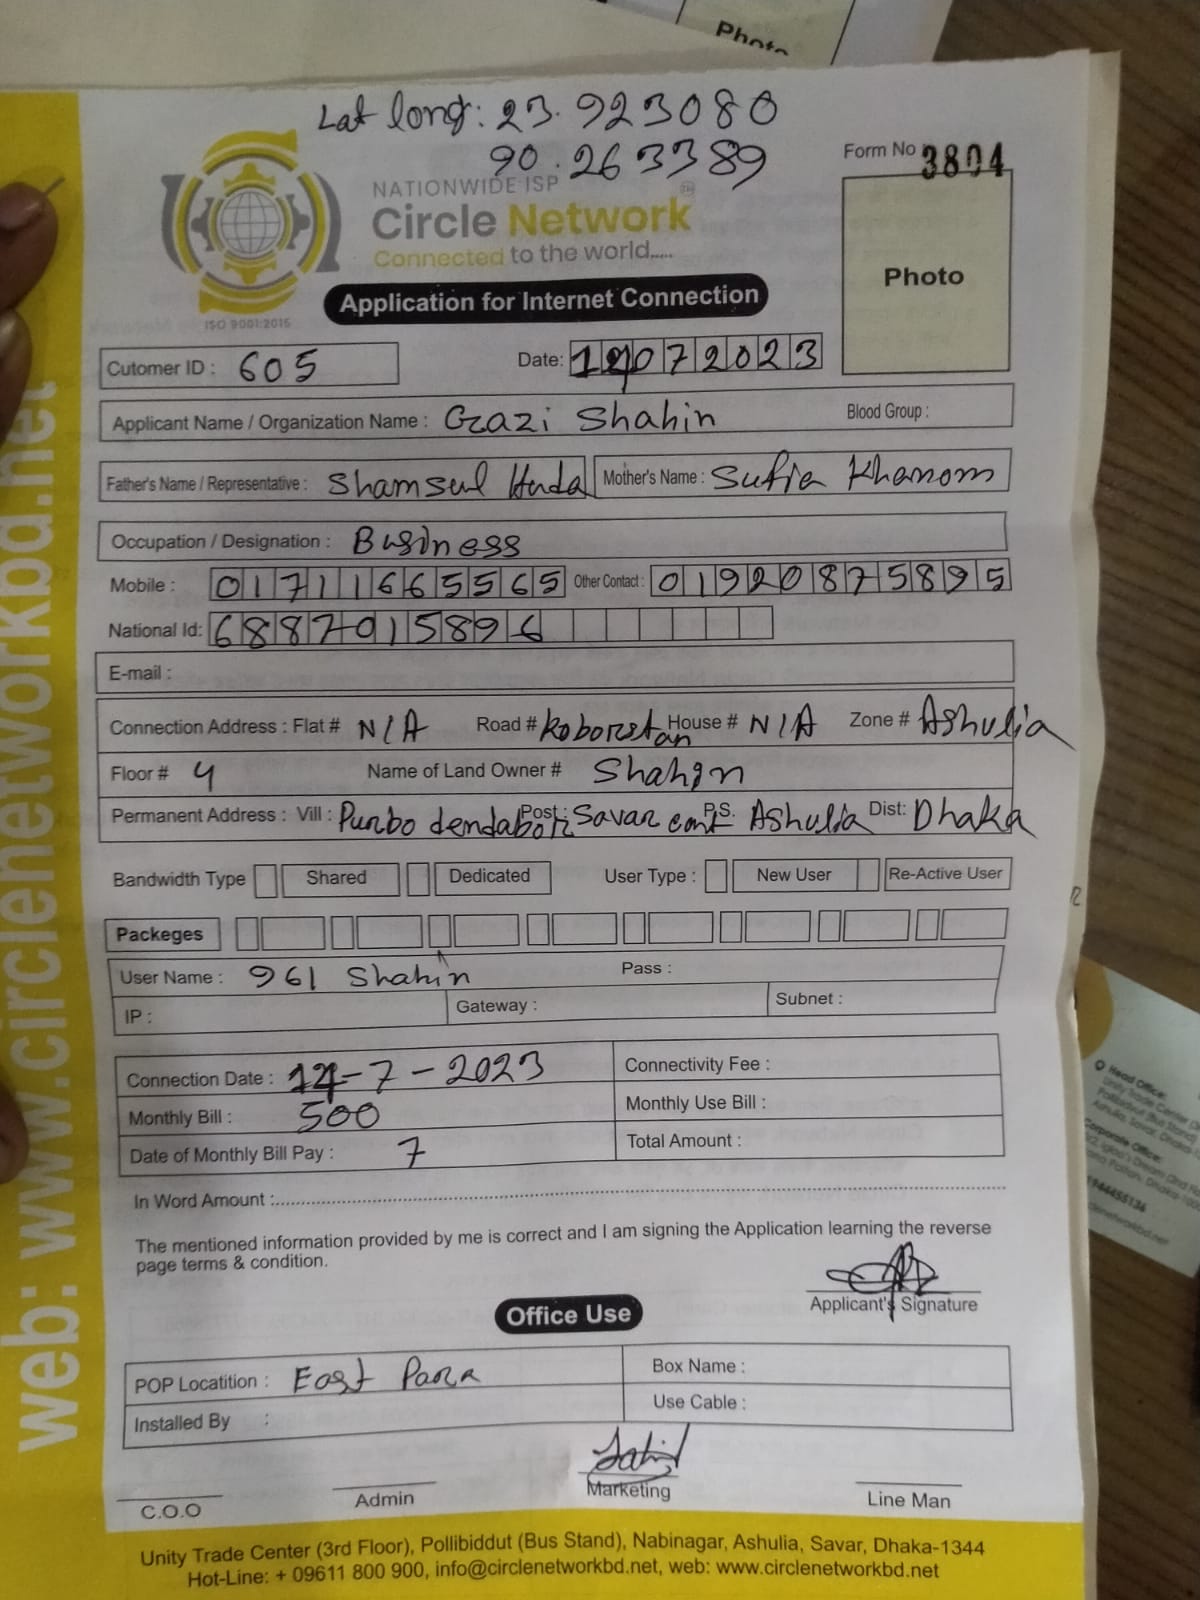 Photo
Lat long: 23.923080
90.263389
Form No 3804
NATIONWIDE ISP
Circle Network TM
Connected to the world.....
ISO 9001:2015
Photo
Application for Internet Connection
Cutomer ID : 605 Date: 14072023
Applicant Name / Organization Name : Gazi Shahin Blood Group :
Father's Name / Representative : Shamsul Huda Mother's Name : Sufia Khanom
Occupation / Designation : Business
Mobile : 01711665565 Other Contact : 01920875895
National Id: 6887015896
E-mail :
Connection Address : Flat # N/A Road # koborstan House # N/A Zone # Ashulia
Floor # 4 Name of Land Owner # Shahin
Permanent Address : Vill : Purbo dendabori Post : Savar cant P.S. Ashulia Dist: Dhaka
Bandwidth Type Shared Dedicated User Type : New User Re-Active User
Packeges
User Name : 961 Shahin Pass :
IP : Gateway : Subnet :
Connection Date : 14-7-2023 Connectivity Fee :
Monthly Bill : 500 Monthly Use Bill :
Date of Monthly Bill Pay : 7 Total Amount :
In Word Amount :
The mentioned information provided by me is correct and I am signing the Application learning the reverse
page terms & condition.
Applicant's Signature
Office Use
POP Locatition : East Para Box Name :
Installed By : Use Cable :
C.O.O Admin Marketing Line Man
Unity Trade Center (3rd Floor), Pollibiddut (Bus Stand), Nabinagar, Ashulia, Savar, Dhaka-1344
Hot-Line: + 09611 800 900, info@circlenetworkbd.net, web: www.circlenetworkbd.net
web: www.circlenetworkbd.net
Head Office:
Unity Trade Center
Corporate Office: